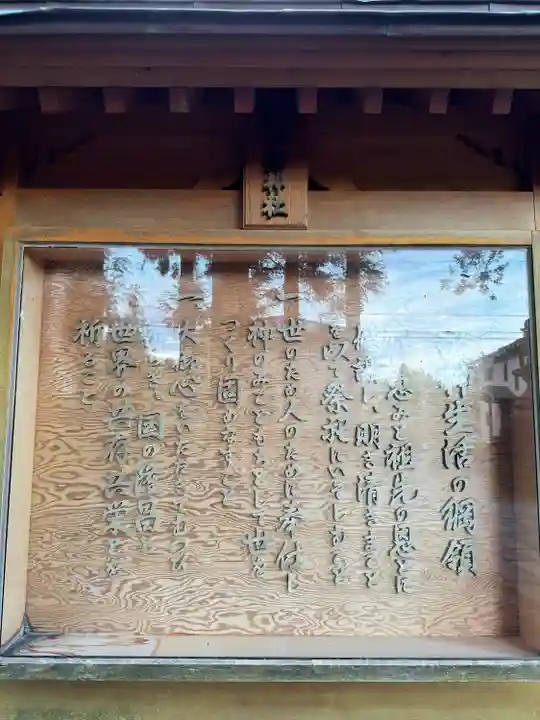 社
神生活の綱領
恵みと祖先の恩とに
感謝し明き清きまこと
を以て祭祀にいそしむこと
一世のため人のために奉仕し
神のみこともちとして世を
つくり固めなすこと
一大御心をいただきてむつび
国の隆昌と
世界の共存共栄とを
祈ること